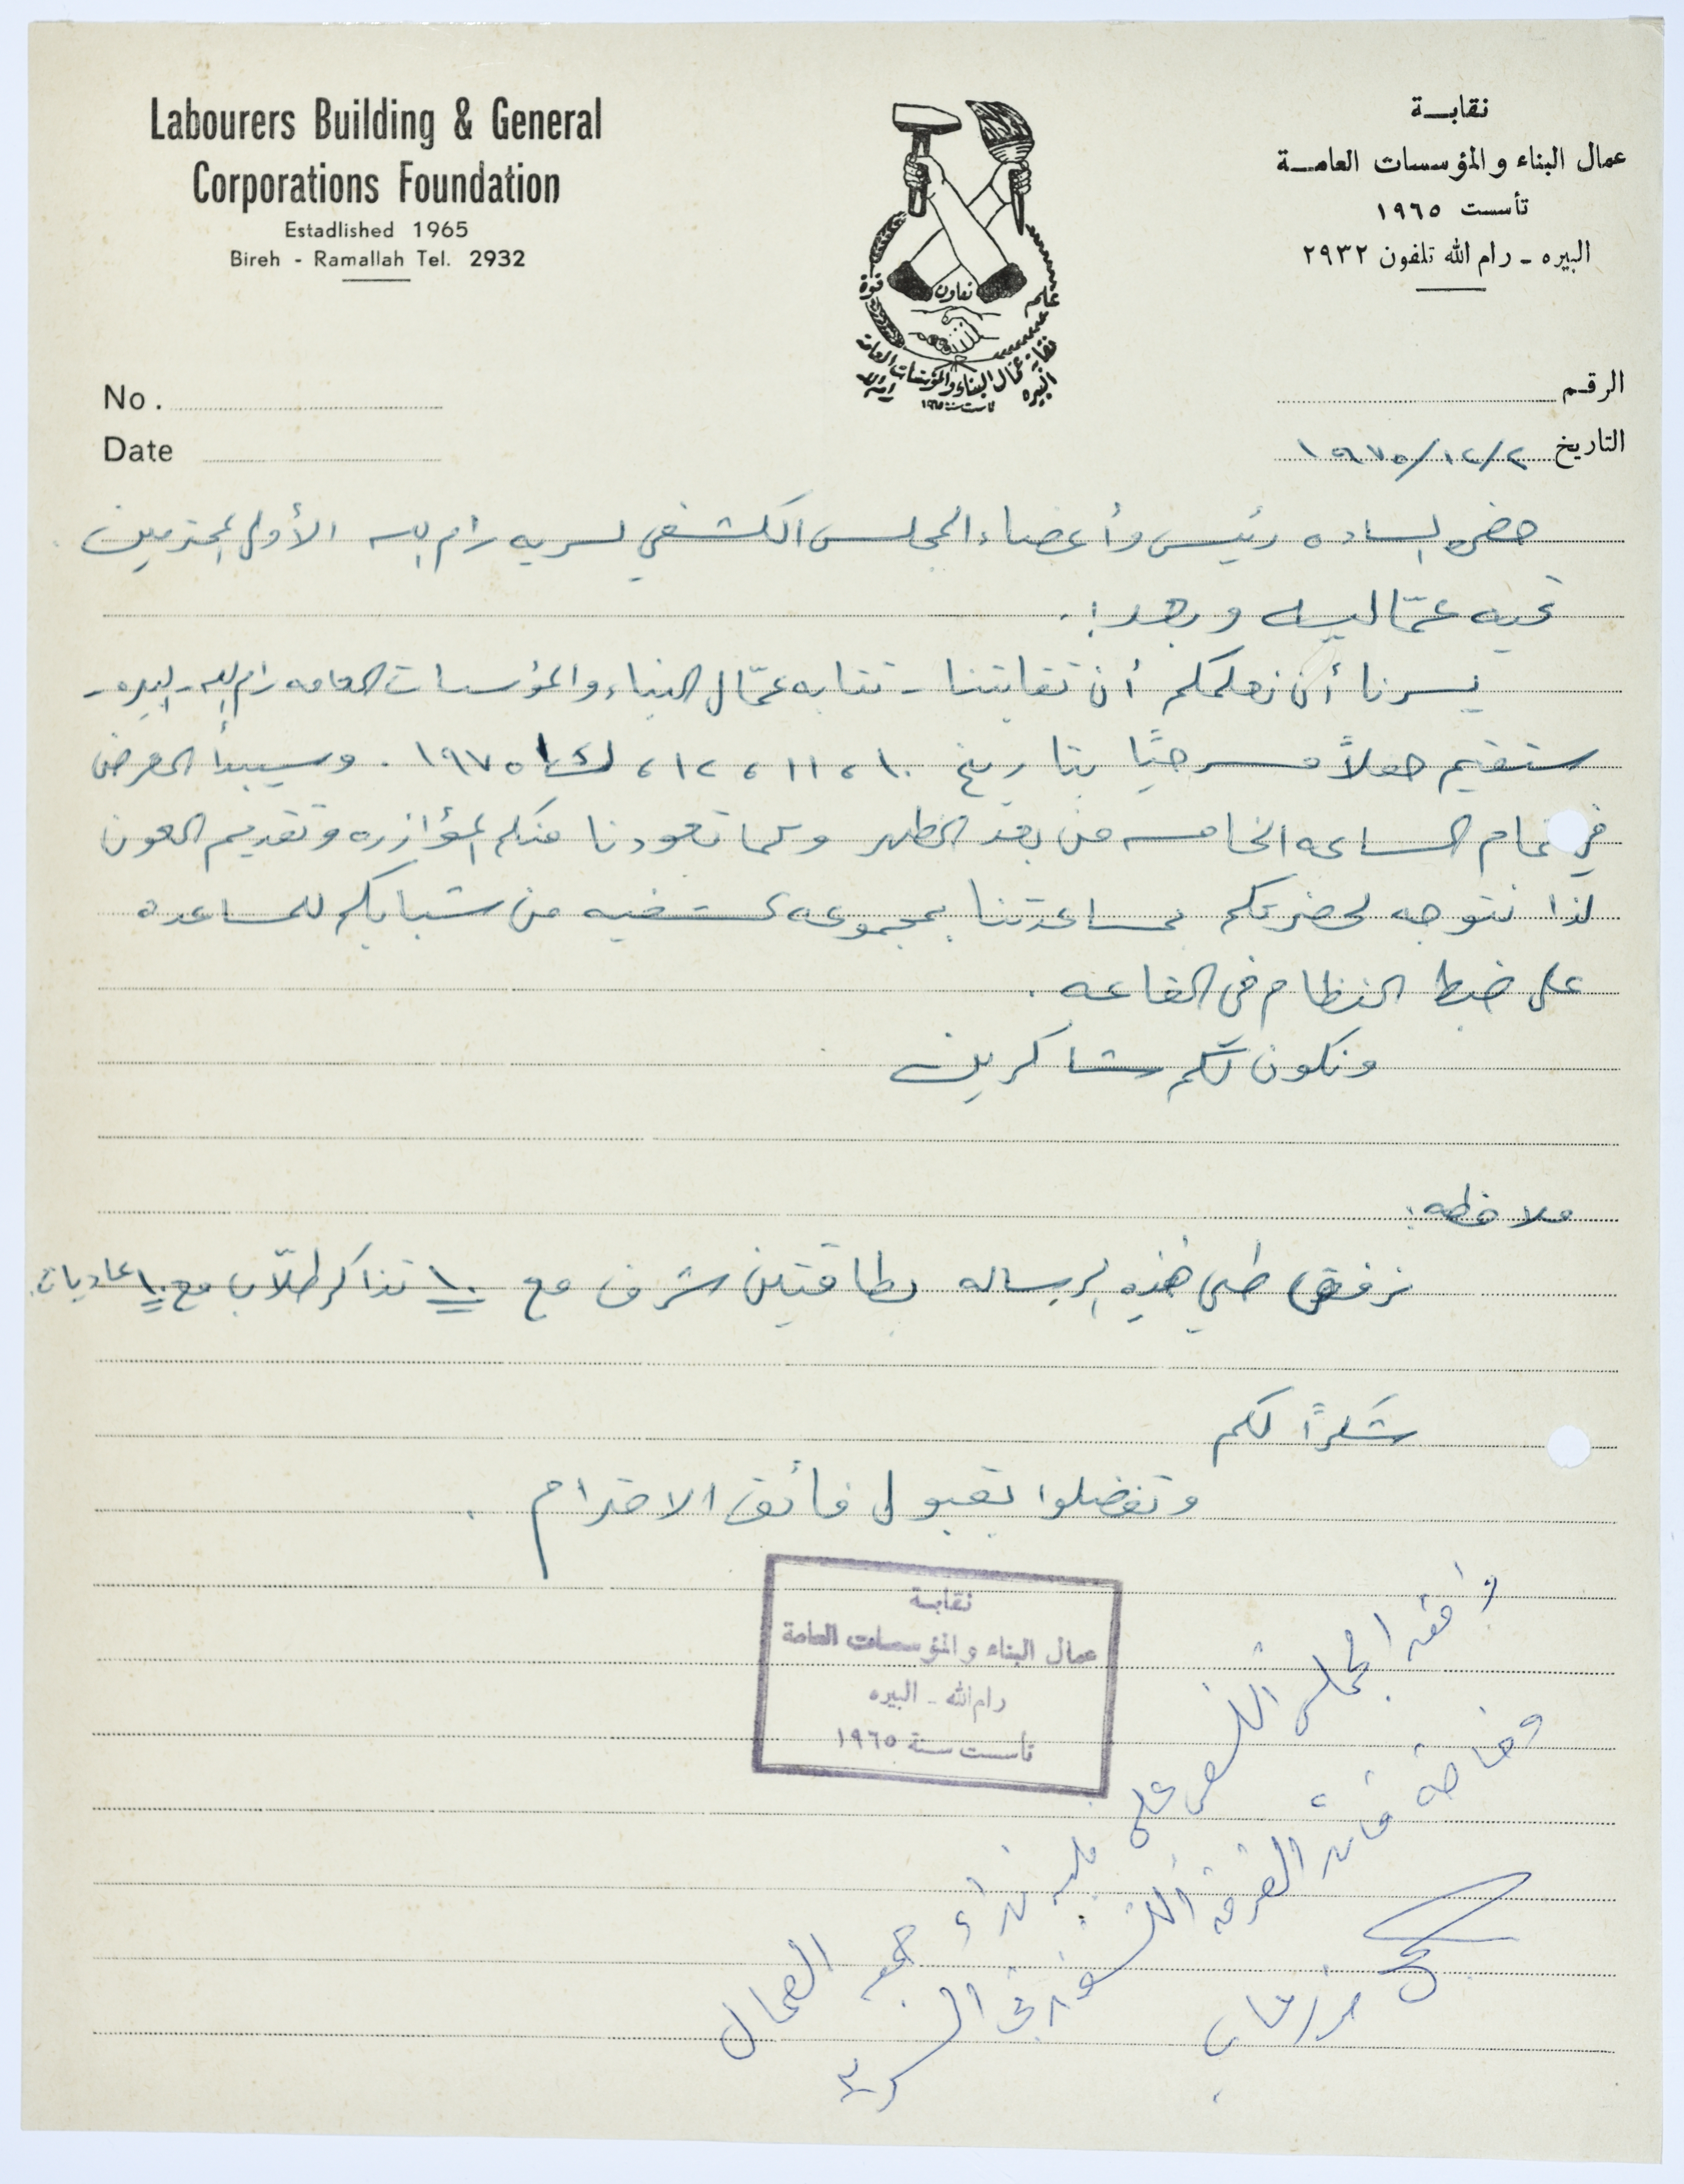 Labourers Building & General
Corporations Foundation
Estadlished 1965
Bireh - Ramallah Tel. 2932
نقابة
عمال البناء والمؤسسات العامة
تأسست ١٩٦٥
البيره - رام الله تلفون ٢٩٣٢
علم
تعاون
قوة
نقابة عمال البناء والمؤسسات العامة
البيره
رام الله
تأسست سنة ١٩٦٥
No.
Date
الرقم
التاريخ ٢/١٢/١٩٧٥
حضرة السادة رئيس وأعضاء المجلس الكشفي لسريه رام الله الأولى المحترمين
تحيه عمّاليه وبعد:
يسرنا أن نعلمكم أن نقابتنا - نقابه عمّال البناء والمؤسسات العامه رام الله - البيره -
ستقيم حفلاً مسرحيًا بتاريخ ١٠، ١١، ١٢، ك١ ١٩٧٥. وسيبدأ العرض
في تمام الساعه الخامسه من بعد الظهر وكما تعودنا منكم المؤازره وتقديم العون
لذا نتوجه لحضرتكم لمساعدتنا بمجموعه كشفيه من شبابكم للمساعده
على ضبط النظام في القاعه.
ونكون لكم شاكرين
ملاحظه:
نرفق طي هذه الرساله بطاقتين شرف مع ١٠ تذاكر طلّاب مع ١٠ عاديات.
شكرًا لكم
وتفضلوا بقبول فائق الاحترام.
نقابة
عمال البناء والمؤسسات العامة
رام الله - البيره
تأسست سنة ١٩٦٥
وافق المجلس الكشفي على تلبية نداء جمعية العمال
وخاصة قائد الفرقة الكشفية في السرية